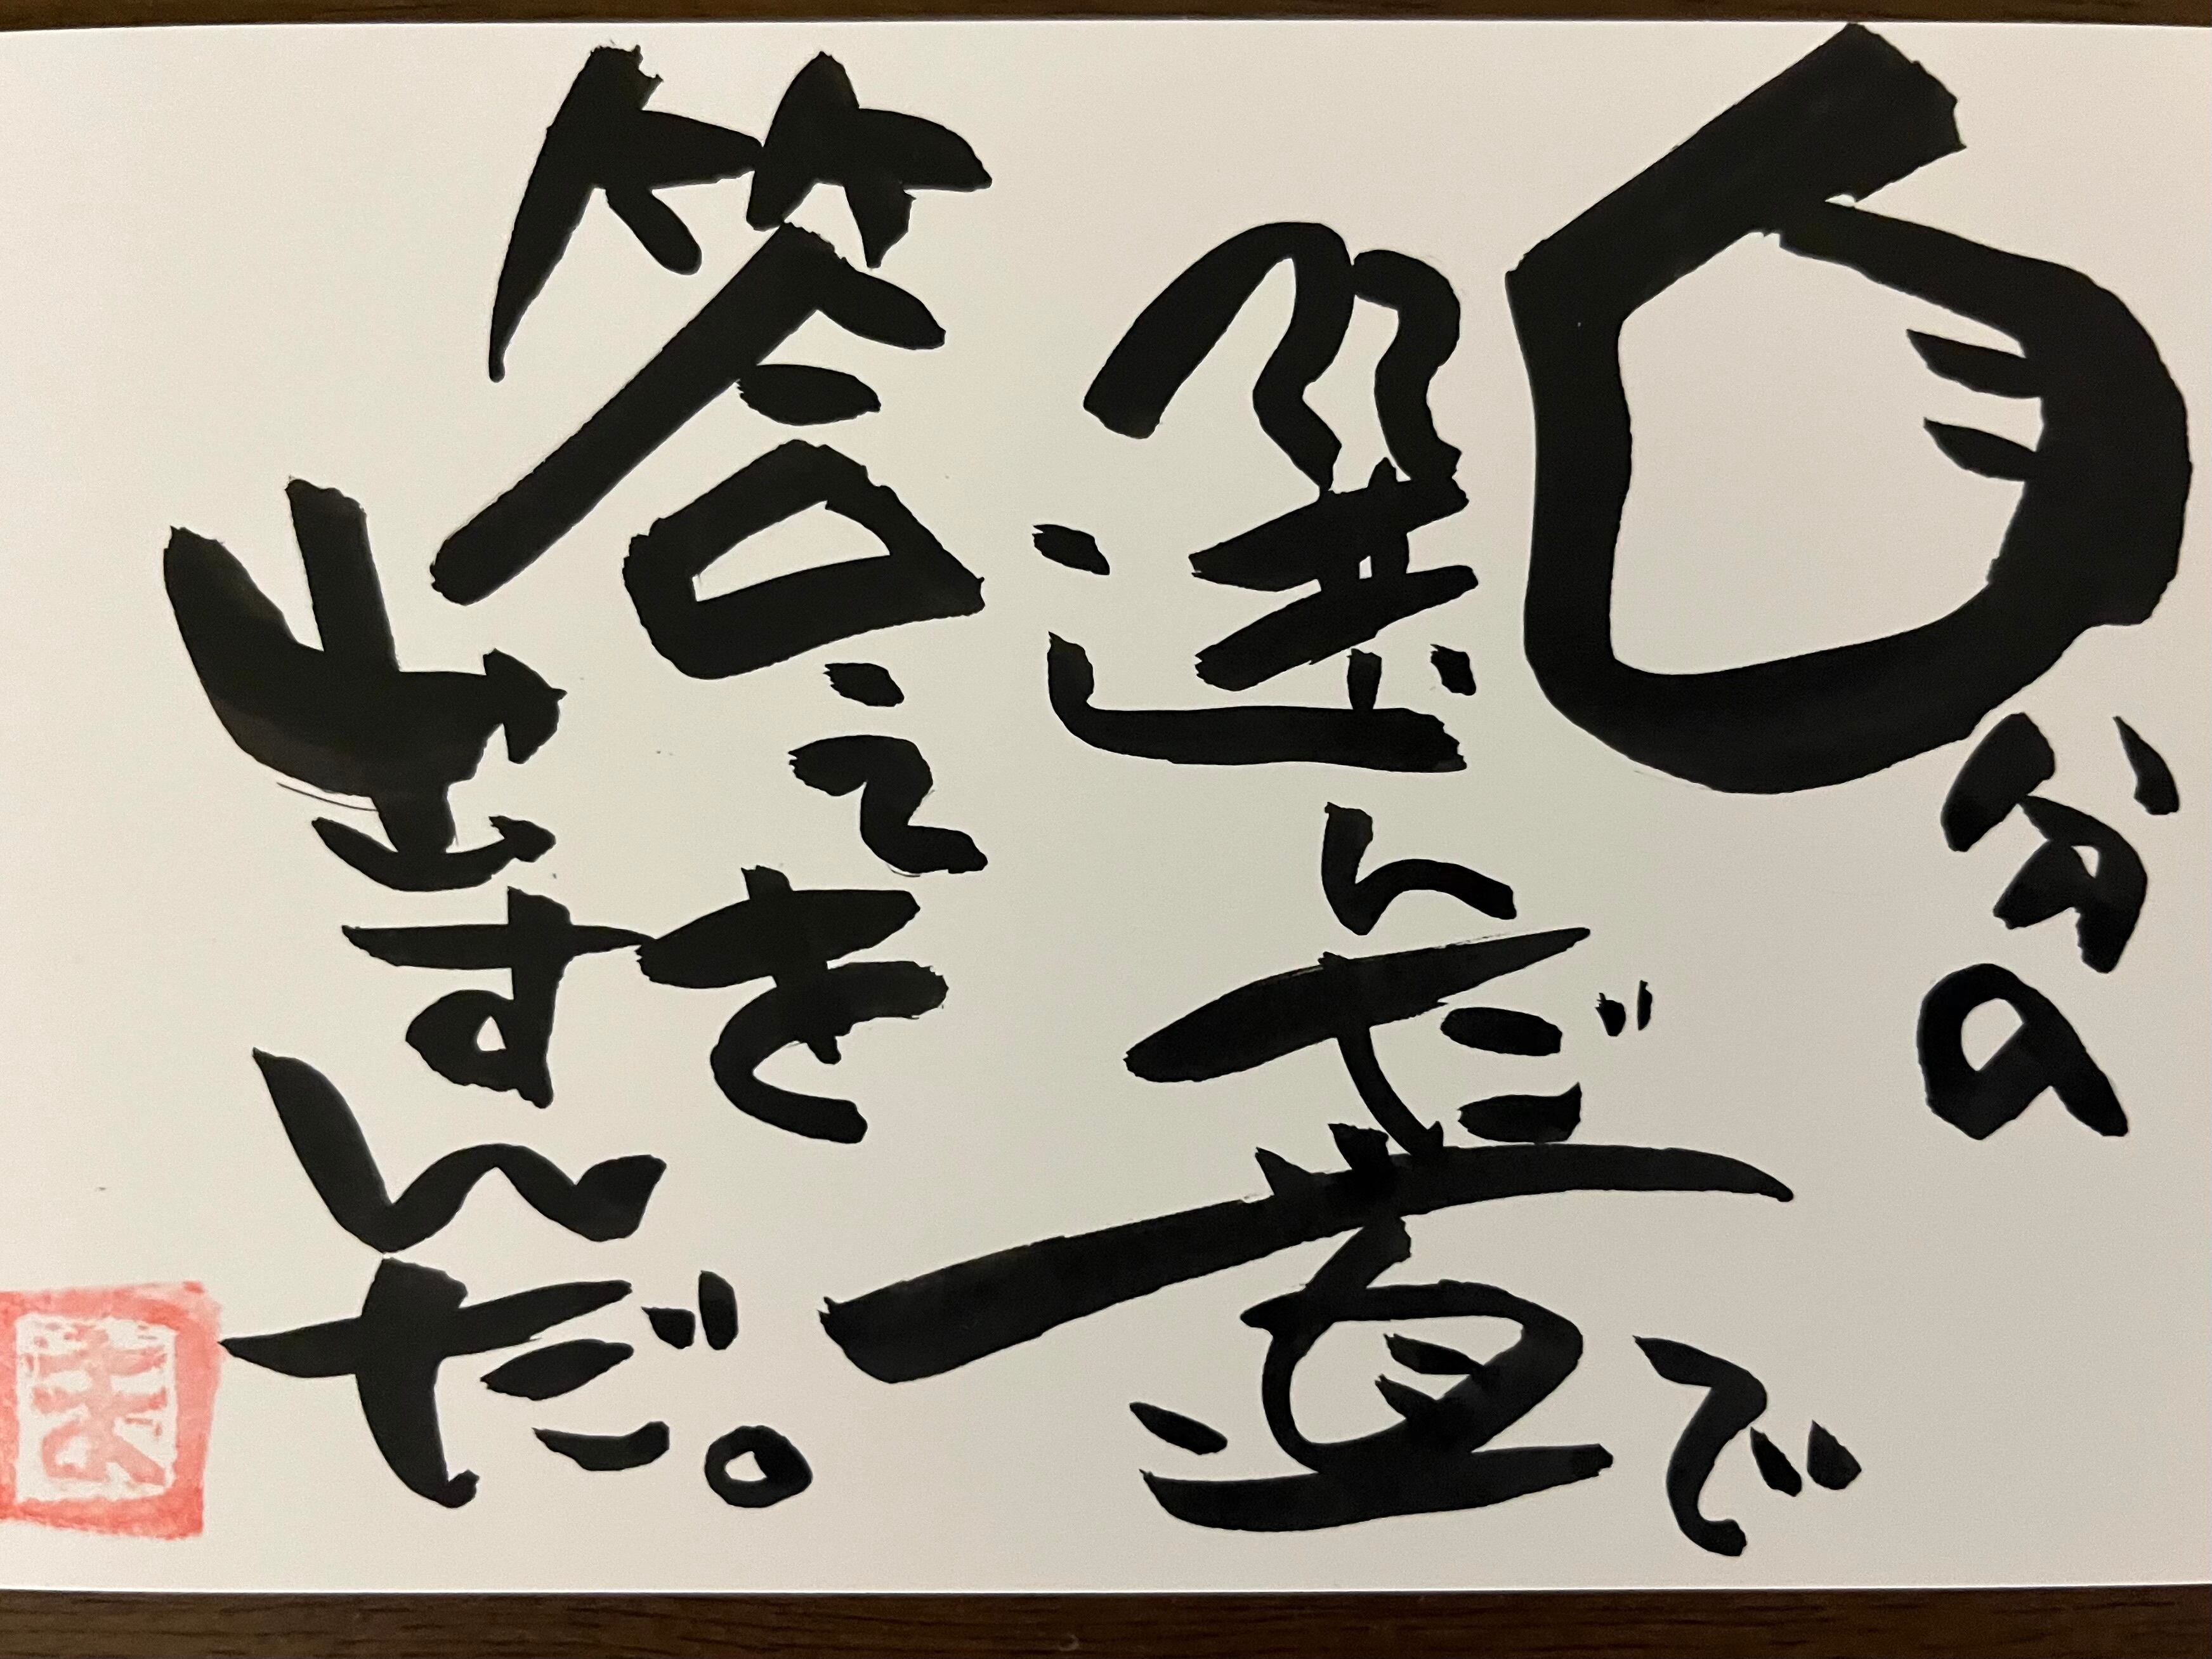 自分の
選んだ道で
答えを
出すんだ。